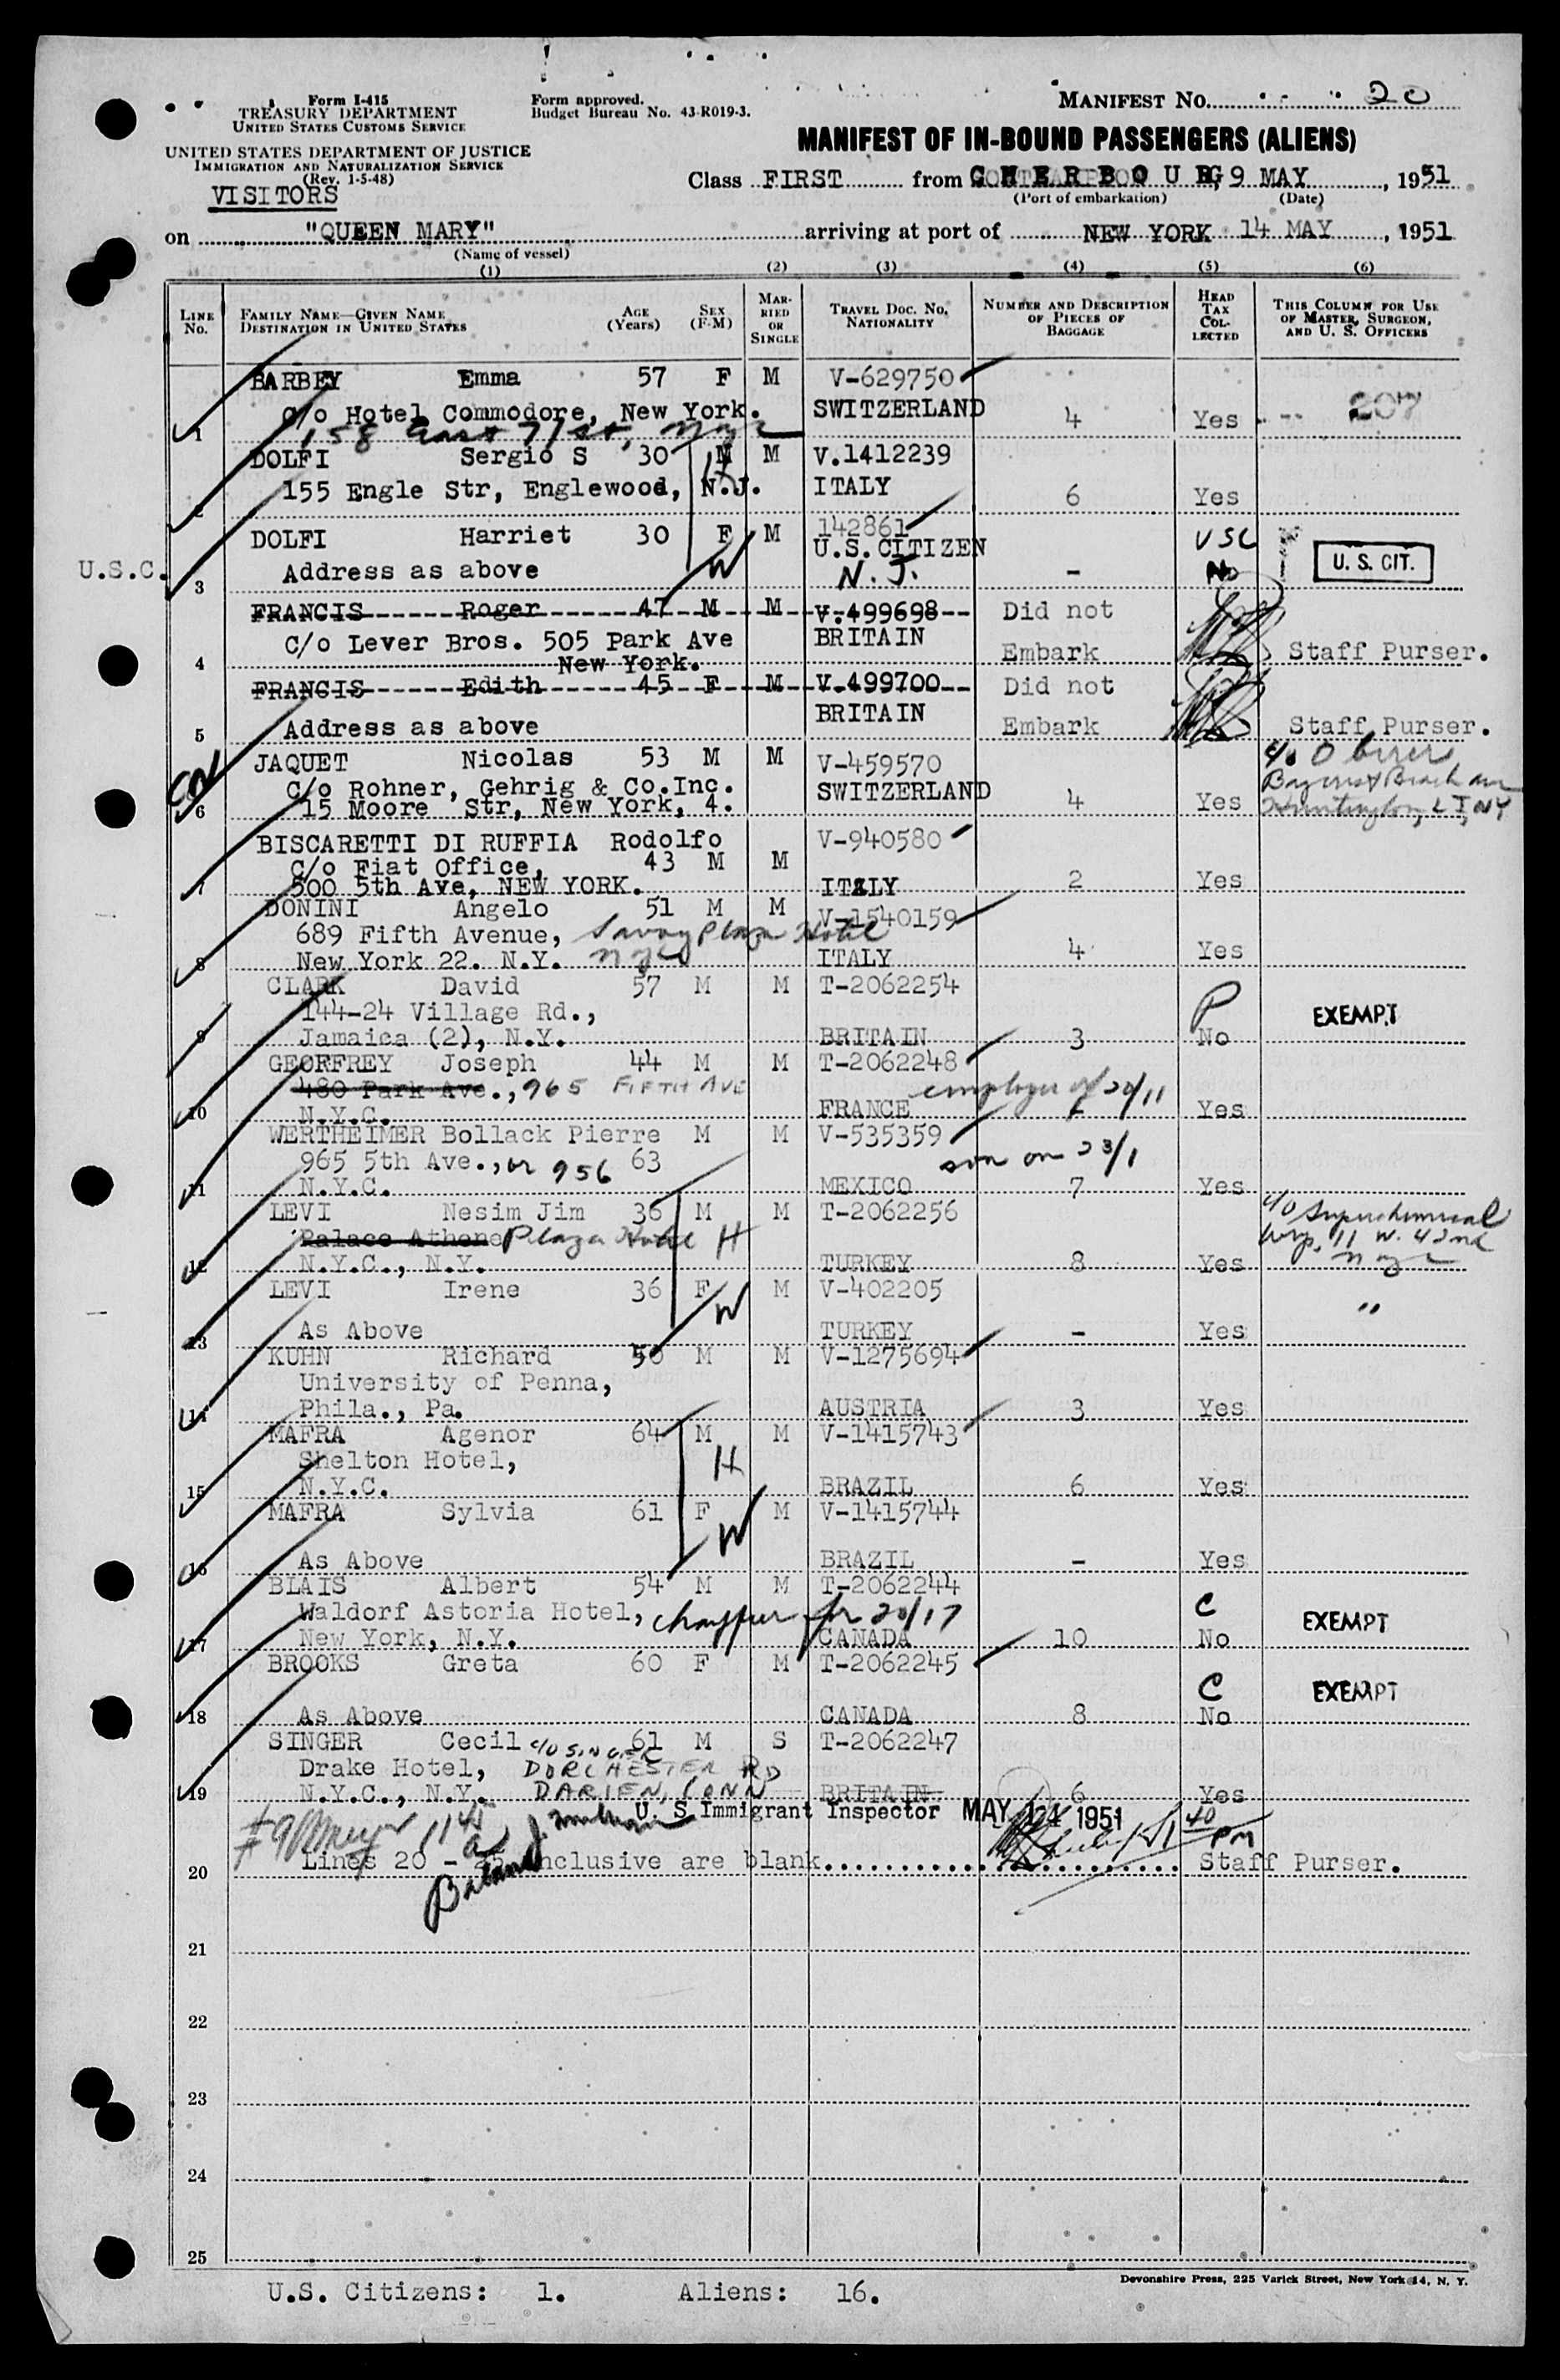 Form I-415
TREASURY DEPARTMENT
UNITED STATES CUSTOMS SERVICE
UNITED STATES DEPARTMENT OF JUSTICE
IMMIGRATION AND NATURALIZATION SERVICE
(Rev. 1-5-48)
VISITORS
Form approved.
Budget Bureau No. 43-R019-3.
MANIFEST NO. 20
MANIFEST OF IN-BOUND PASSENGERS (ALIENS)
Class FIRST from CHERBOURG, 9 MAY, 1951
(Port of embarkation) (Date)
on "QUEEN MARY" arriving at port of NEW YORK 14 MAY, 1951
(Name of vessel)
(1) (2) (3) (4) (5) (6)
LINE No. FAMILY NAME—GIVEN NAME DESTINATION IN UNITED STATES AGE (Years) SEX (F-M) MARRIED OR SINGLE TRAVEL DOC. NO. NATIONALITY NUMBER AND DESCRIPTION OF PIECES OF BAGGAGE HEAD TAX COLLECTED THIS COLUMN FOR USE OF MASTER, SURGEON, AND U. S. OFFICERS
BARBEY Emma 57 F M V-629750
c/o Hotel Commodore, New York. SWITZERLAND 4 Yes 207
1 158 East 71 St, NYC
DOLFI Sergio S 30 M M V.1412239
H
155 Engle Str, Englewood, N.J. ITALY 6 Yes
2
DOLFI Harriet 30 F M 142861
U.S. CITIZEN USC
U.S.C. Address as above W N.J. - No U. S. CIT.
3
FRANCIS Roger 47 M M V.499698 Did not
C/o Lever Bros. 505 Park Ave BRITAIN Embark Staff Purser.
4 New York.
FRANCIS Edith 45 F M V.499700 Did not
5 Address as above BRITAIN Embark Staff Purser.
JAQUET Nicolas 53 M M V-459570
C/o Rohner, Gehrig & Co.Inc. SWITZERLAND 4 Yes
6 15 Moore Str, New York, 4. Huntington, L I, NY
BISCARETTI DI RUFFIA Rodolfo V-940580
C/o Fiat Office, 43 M M
7 500 5th Ave, NEW YORK. ITALY 2 Yes
DONINI Angelo 51 M M V-1540159
689 Fifth Avenue, Savoy Plaza Hotel
8 New York 22. N.Y. NYC ITALY 4 Yes
CLARK David 57 M M T-2062254
144-24 Village Rd., P EXEMPT
9 Jamaica (2), N.Y. BRITAIN 3 No
GEOFFREY Joseph 44 M M T-2062248
480 Park Ave., 965 FIFTH AVE employee of 20/11
10 N.Y.C. FRANCE Yes
WERTHEIMER Bollack Pierre M M V-535359
965 5th Ave., or 956 63 son on 23/1
11 N.Y.C. MEXICO 7 Yes
LEVI Nesim Jim 36 M M T-2062256
Palace Athene Plaza Hotel H
12 N.Y.C., N.Y. TURKEY 8 Yes
c/o Superchemical
Corp. 11 W. 42nd
NYC
LEVI Irene 36 F M V-402205
W "
13 As Above TURKEY - Yes
KUHN Richard 50 M M V-1275694
University of Penna,
14 Phila., Pa. AUSTRIA 3 Yes
MAFRA Agenor 64 M M V-1415743
Shelton Hotel, H
15 N.Y.C. BRAZIL 6 Yes
MAFRA Sylvia 61 F M V-1415744
W
16 As Above BRAZIL - Yes
BLAIS Albert 54 M M T-2062244
Waldorf Astoria Hotel, chauffeur for 20/17 C EXEMPT
17 New York, N.Y. CANADA 10 No
BROOKS Greta 60 F M T-2062245
C EXEMPT
18 As Above CANADA 8 No
SINGER Cecil 61 M S T-2062247
c/o SINGER
Drake Hotel, DORCHESTER RD
19 N.Y.C., N.Y. DARIEN, CONN BRITAIN 6 Yes
U. S. Immigrant Inspector MAY 14 1951
1 40 PM
20 Lines 20 - 25 inclusive are blank. Staff Purser.
21
22
23
24
25
U.S. Citizens: 1. Aliens: 16.
Devonshire Press, 225 Varick Street, New York 14, N. Y.